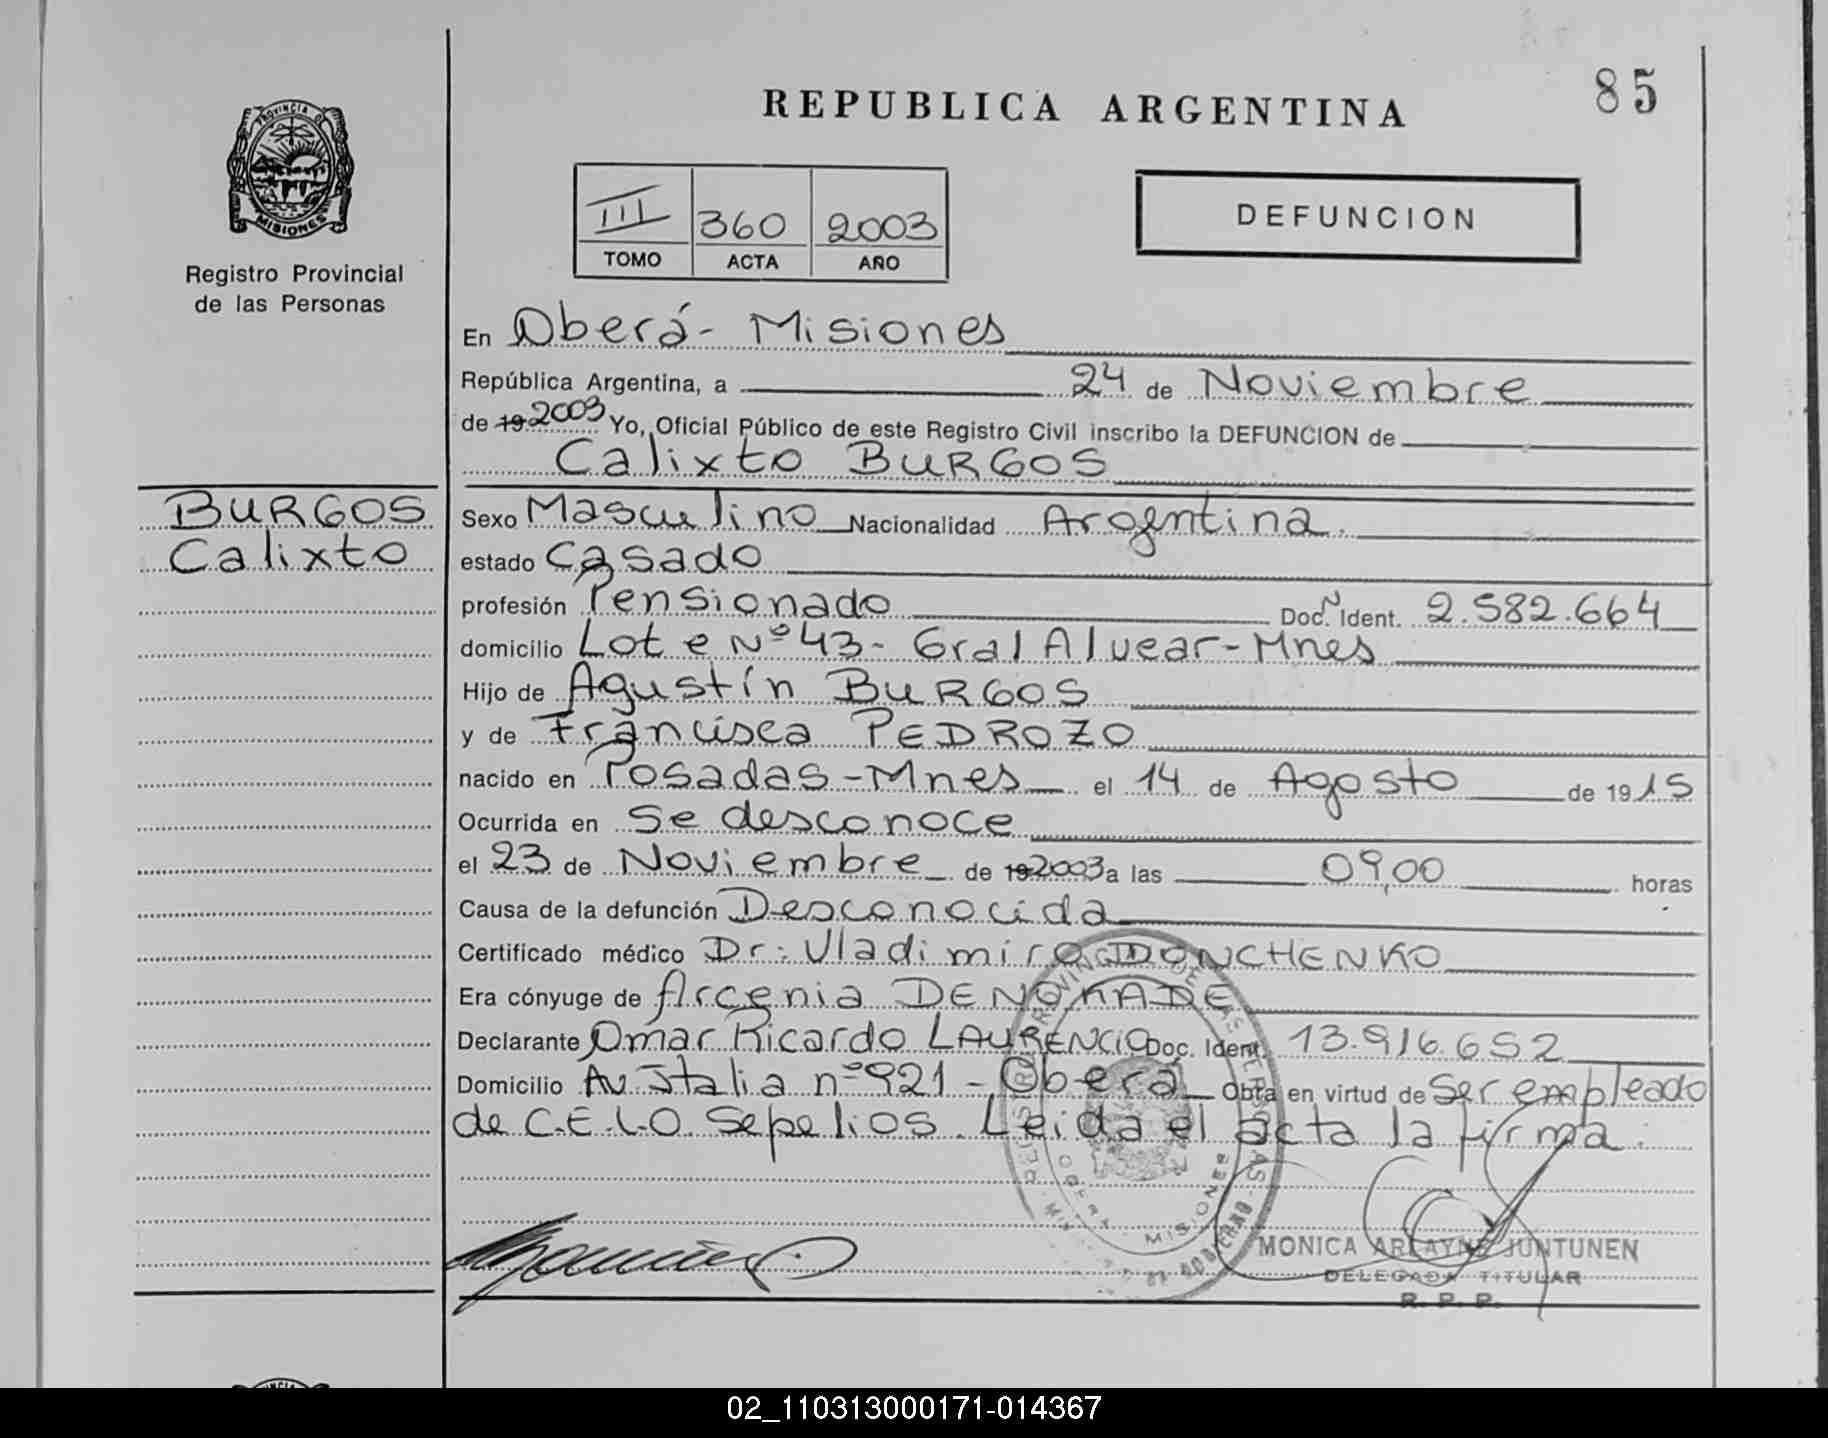 85
REPUBLICA ARGENTINA
PROVINCIA D
MISIONES
Registro Provincial
de las Personas
III 360 2003
TOMO ACTA AÑO
DEFUNCION
En Oberá - Misiones
República Argentina, a 24 de Noviembre
de 19 2003 Yo, Oficial Público de este Registro Civil inscribo la DEFUNCION de
Calixto BURGOS
BURGOS
Calixto
Sexo Masculino Nacionalidad Argentina.
estado Casado
profesión Pensionado Doc. N Ident. 2.582.664
domicilio Lote Nº 43 - Gral Alvear - Mnes
Hijo de Agustín BURGOS
y de Francisca PEDROZO
nacido en Posadas - Mnes el 14 de Agosto de 1915
Ocurrida en Se desconoce
el 23 de Noviembre de 19 2003 a las 09,00 horas
Causa de la defunción Desconocida
Certificado médico Dr: Vladimiro DONCHENKO
Era cónyuge de Arcenia DENOKADE
Declarante Omar Ricardo LAURENCIO Doc. Ident. 13.916.652
Domicilio Av. Italia nº 921 - Oberá Obra en virtud de Ser empleado
de C.E.L.O. Sepelios. Leida el acta la firma.
OBERA MISIONES
MONICA ARLAYNE JUNTUNEN
DELEGADA TITULAR
R. P. P.
02_110313000171-014367